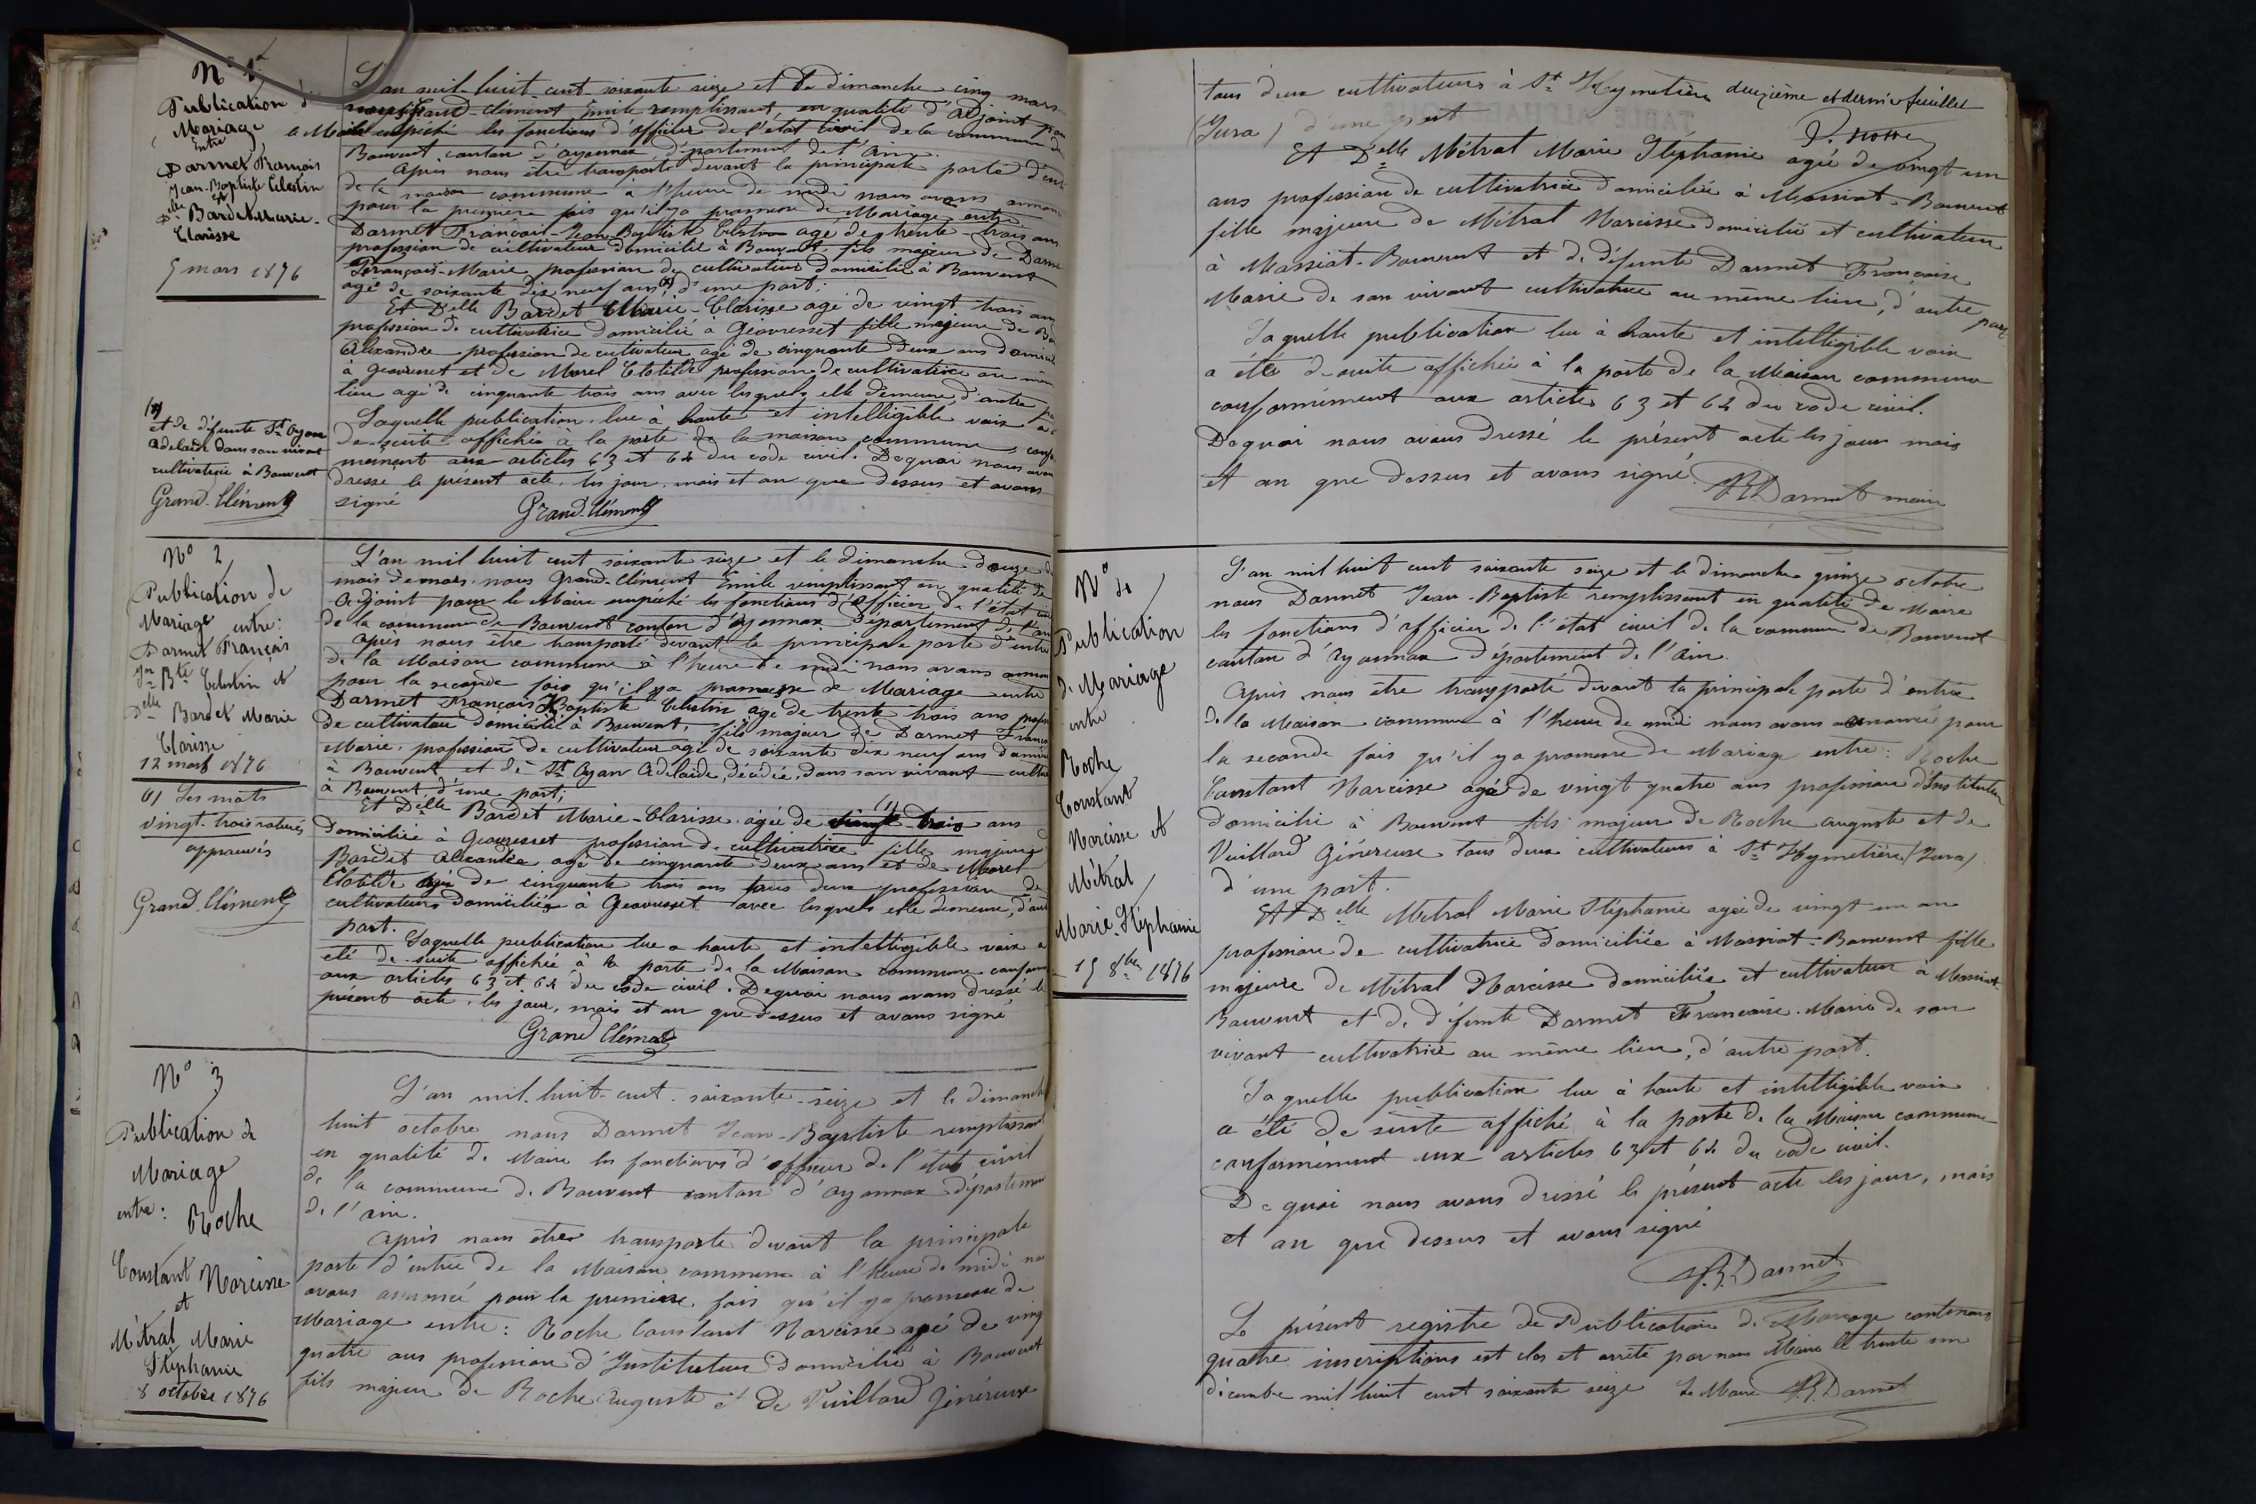 N° 1
Publication de
Mariage
Entre
Darmet François
Jean-Baptiste Célestin
et
Delle Bardet Marie-
Clarisse
5 mars 1876
L'an mil-huit cent soixante seize et le dimanche cinq mars
nous Grand-Clément Emile remplissant en qualité d'Adjoint pour
le Maire empéché les fonctions d'officier de l'état civil de la commune de
Bouvent canton d'oyonnax département de l'Ain.
Après nous être transporté devant la principale porte d'entrée
de la maison commune à l'heure de midi nous avons annoncé
pour la première fois qu'il y a promesse de Mariage entre
Darmet François-Jean-Baptiste Célestin agé de trente-trois ans
profession de cultivateur domicilié à Bouvent, fils majeur de Darmet
François-Marie profession de cultivateur domicilié à Bouvent
agé de soixante dix neuf ans (x) d'une part;
Et Delle Bardet Marie-Clarisse agé de vingt trois ans
profession de cultivatrice domicilié à Géovresset fille majeure de Bardet
Alexandre profession de cultivateur agé de cinquante deux ans domicilié
à Geovresset et de Morel Clotilde profession de cultivatrice au même
lieu agé de cinquante trois ans avec lesquels elle demeure d'autre part
Laquelle publication, lue à haute et intelligible voix a été
de suite affichée à la porte de la maison commune, confor-
mément aux articles 63 et 64 du code civil. Dequoi nous avons
dressé le présent acte, les jour, mois et an que dessus et avons
signé
Grand-Clément
(x)
et de défunte St Oyan
Adelaide dans son vivant
cultivatrice à Bouvent
Grand-Clément
N° 2
Publication de
Mariage entre:
Darmet François
Jn Bte Célestin et
Delle Bardet Marie
Clarisse
12 mars 1876
(1) Les mots
vingt-trois raturés
approuvés
Grand-Clément
L'an mil huit cent soixante seize et le dimanche douze du
mois de mars, nous Grand-Clément Emile remplissant en qualité de
Adjoint pour le Maire empéché les fonctions d'officier de l'état civil
de la commune de Bouvent canton d'oyonnax département de l'Ain
Après nous être transporté devant la principale porte d'entrée
de la Maison commune à l'heure de midi nous avons annoncé
pour la seconde fois qu'il y a promesse de Mariage entre
Darmet François Baptiste Célestin agé de trente trois ans profession
de cultivateur domicilié à Bouvent, fils majeur de Darmet François
Marie, profession de cultivateur agé de soixante dix neuf ans domicilié
à Bouvent et de St Oyan Adelaide, décédée, dans son vivant cultivatrice
à Bouvent, d'une part;
Et Delle Bardet Marie-Clarisse agée de vingt-trois (1) ans
domiciliée à Geovresset profession de cultivatrice fille majeure
Bardet Alexandre agé de cinquante deux ans et de Morel
Clotilde agée de cinquante trois ans tous deux profession de
cultivateurs domiciliés à Geovresset avec lesquels elle demeure, d'autre
part.
Laquelle publication lue a haute et intelligible voix a
été de suite affichée à la porte de la Maison commune conformément
aux articles 63 et 64 du code civil. Dequoi nous avons dressé le
présent acte, les jour, mois et an que dessus et avons signé
Grand Clément
N° 3
Publication de
Mariage
entre: Roche
Constant Narcisse
et
Métral Marie
Stéphanie
8 octobre 1876
L'an mil-huit-cent-soixante-seize et le dimanche
huit octobre nous Darmet Jean-Baptiste remplissant
en qualité de Maire les fonctions d'officier de l'état civil
de la commune de Bouvent canton d'oyonnax département
de l'ain.
Après nous être transporté devant la principale
porte d'entrée de la Maison commune à l'heure de midi nous
avons annoncé pour la première fois qu'il y a promesse de
Mariage entre: Roche Constant Narcisse agé de vingt
quatre ans profession d'Instituteur domicilié à Bouvent
fils majeur de Roche Auguste et de Vuillard Généreuse
tous deux cultivateurs à St Hymetière deuxième et dernier feuillet
(Jura) d'une part
Et Delle Métral Marie Stéphanie agée de vingt un
ans profession de cultivatrice domiciliée à Massiat-Bouvent
fille majeure de Métral Narcisse domicilié et cultivateur
à Massiat-Bouvent et de défunte Darmet Françoise
Marie de son vivant cultivatrice au même lieu, d'autre part
Laquelle publication lue à haute et intelligible voix
a été de suite affichée à la porte de la Maison commune
conformément aux articles 63 et 64 du code civil.
Dequoi nous avons dressé le présent acte les jour mois
et an que dessus et avons signé.
JB Darmet maire
N° 4
Publication
de Mariage
entre
Roche
Constant
Narcisse et
Métral
Marie-Stéphanie
15 8bre 1876
L'an mil huit cent soixante seize et le dimanche quinze octobre
nous Darmet Jean-Baptiste remplissant en qualité de Maire
les fonctions d'officier de l'état civil de la commune de Bouvent
canton d'oyonnax département de l'ain.
Après nous être transporté devant la principale porte d'entrée
de la Maison commune à l'heure de midi nous avons annoncé pour
la seconde fois qu'il y a promesse de Mariage entre: Roche
Constant Narcisse agé de vingt quatre ans profession d'Instituteur
domicilié à Bouvent fils majeur de Roche Auguste et de
Vuillard Généreuse tous deux cultivateurs à St Hymetière (Jura)
d'une part.
Et Delle Métral Marie Stéphanie agée de vingt un an
profession de cultivatrice domiciliée à Massiat-Bouvent fille
majeure de Métral Narcisse domicilié et cultivateur à Massiat-
Bouvent et de défunte Darmet Françoise-Marie de son
vivant cultivatrice au même lieu, d'autre part.
Laquelle publication lue à haute et intelligible voix
a été de suite affiché à la porte de la Maison commune
conformément aux articles 63 et 64 du code civil.
De quoi nous avons dressé le présent acte les jour, mois
et an que dessus et avons signé
JB. Darmet
Le présent registre de Publication de Mariage contenant
quatre inscriptions est clos et arrêté par nous Maire le trente un
décembre mil huit cent soixante seize Le Maire JB. Darmet